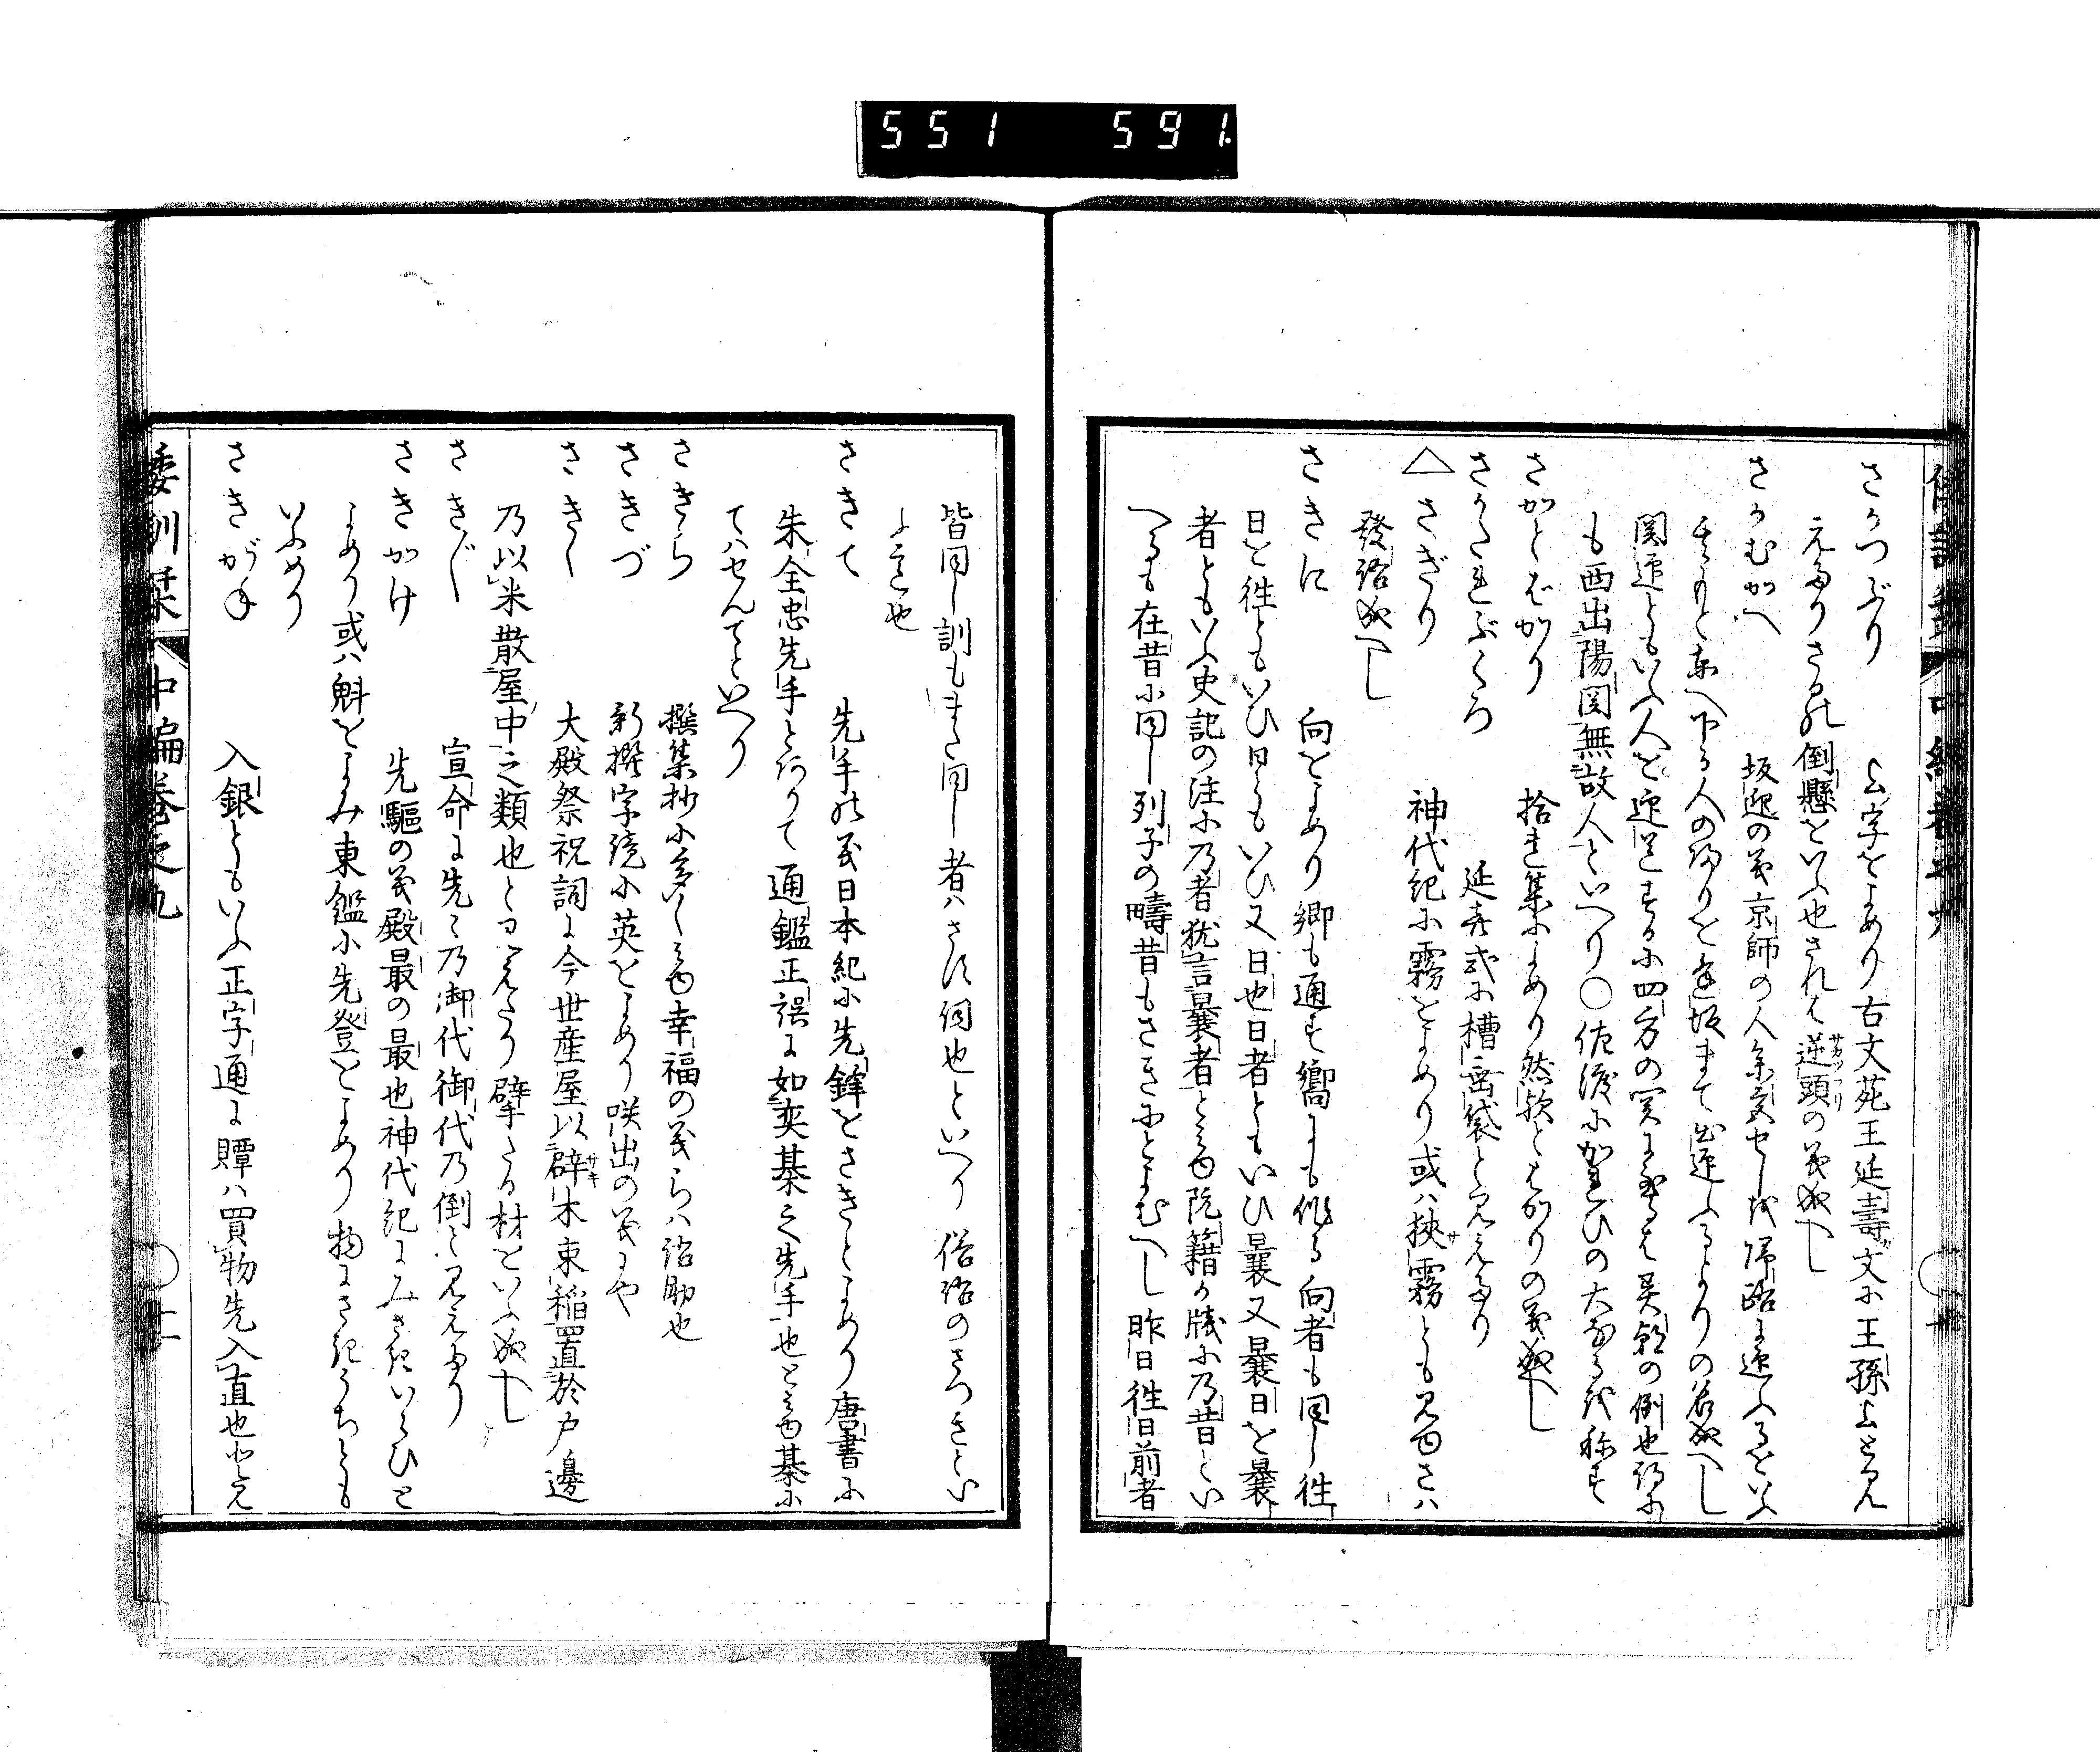 551 591
さかつぶり 𠄔字をよめり古文苑王延壽文に王孫𠄔と見
えたりさるの倒懸をいふ也されは逆頭の義成へし
さかむかへ 坂迎の義京師の人参宮せし於帰路に迎ふるをいふ
もと東へ下る人の帰りを逢坂まて出迎ふるよりの名成へし
関迎ともいふ人を迎送するに四方の関に至るは異朝の例也詩に
も西出陽関無故人といへり〇佐渡にかまひの大なるを称す
さがとばかり 拾遺集によめり然歟とばかりの義成へし
さかたまぶくろ 延喜式に槽垂袋と見えたり
△さぎり 神代紀に霧をよめり或ハ挾霧とも見ゆさハ
發語成へし
さきに 向をよめり郷も通す嚮にも作る向者も同し往
日を往ともいひ日ともいひ又日也日者ともいひ曩又曩日を曩
者ともいふ史記の注に乃者猶言曩者と見ゆ阮籍か牋に乃昔とい
へるも在昔に同し列子の疇昔もさきにとよむへし昨日往日前者
皆同し訓もまた同し者ハさす詞也といへり俗語のさつきとい
ふ意也
さきて 先手の義日本紀に先鋒をさきとよめり唐書に
朱全忠先手とありて通鑑正誤に如奕棊之先手也と見ゆ棊に
てハせんてといへり
さきら 撰集抄に多く見ゆ幸福の義らハ語助也
さきづ 新撰字鏡に英をよめり咲出の義にや
さきく 大殿祭祝詞に今世産屋以辟木束稲置於戸邊
乃以米散屋中之類也と見えたり擘たる材をいふ成へし
さきゞ 宣命に先々乃御代御代乃倒と見えたり
さきがけ 先驅の義殿最の最也神代紀にみさきいらひと
よめり或ハ魁をよみ東鑑に先登をよめり物にさきうちとも
いふめり
さきがね 入銀ともいふ正字通に贉ハ買物先入直也と見
倭訓栞 中編巻之九 〇十一